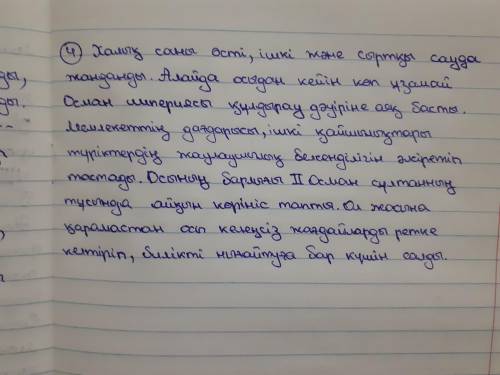 ④ Халық саны өсті, ішкі және сыртқы сауда
ды, жанданды. Алайда осыдан кейін көп ұзамай
ды. Осман империясы құлдырау дәуіріне аяқ басты.
Мемлекеттің дағдарысы, ішкі қайшылықтары
түріктердің жаулаушылық белсенділігін әлсіретіп
тастады. Осының барлығы II Осман сұлтанның
тұсында айқын көрініс тапты. Ол жасына
қарамастан осы келеңсіз жағдайларды ретке
келтіріп, билікті нығайтуға бар күшін салды.